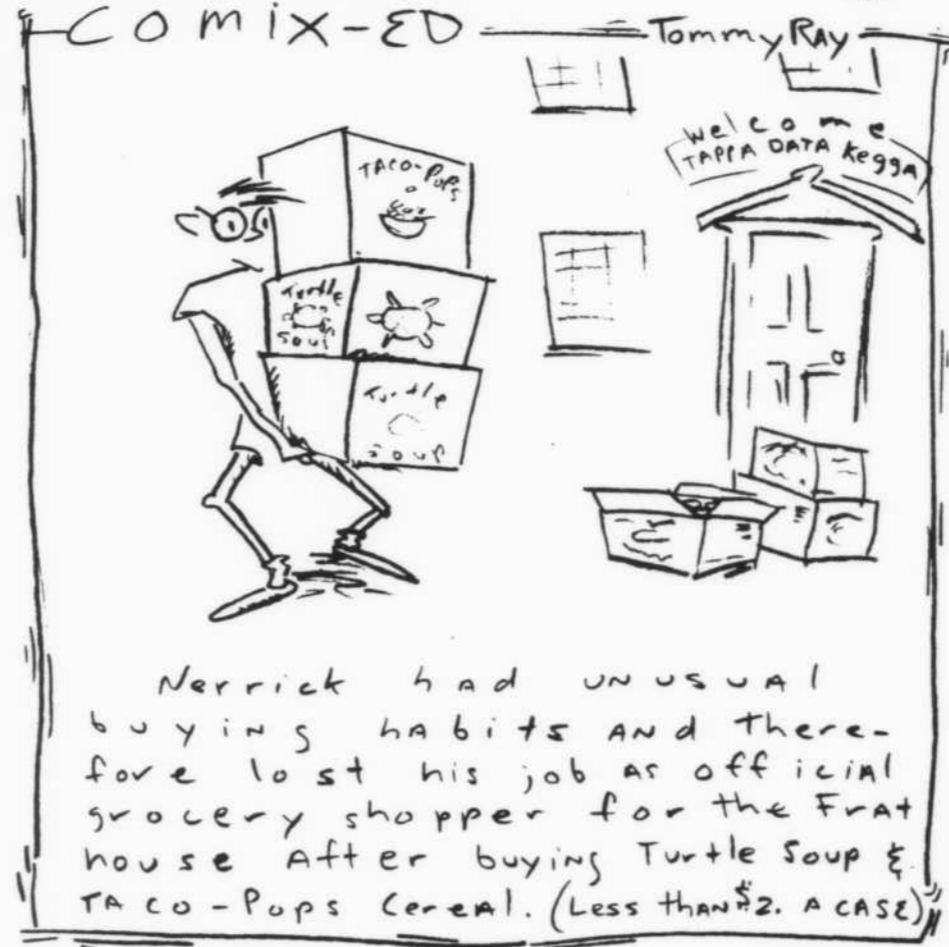 COMIX-ED
Tommy RAY
Welcome
TAPPA DATA Kegga
TACO-POPS
Turtle
SOUP
Turtle
SOUP
Nerrick had UNUSUAl
buyiNg hAbits ANd there-
fore lost his job AS officiAl
grocery shopper for the FrAt
house After buyiNg Turtle Soup &
TACO-Pops CereAl. (Less thAN $2. A CASE)